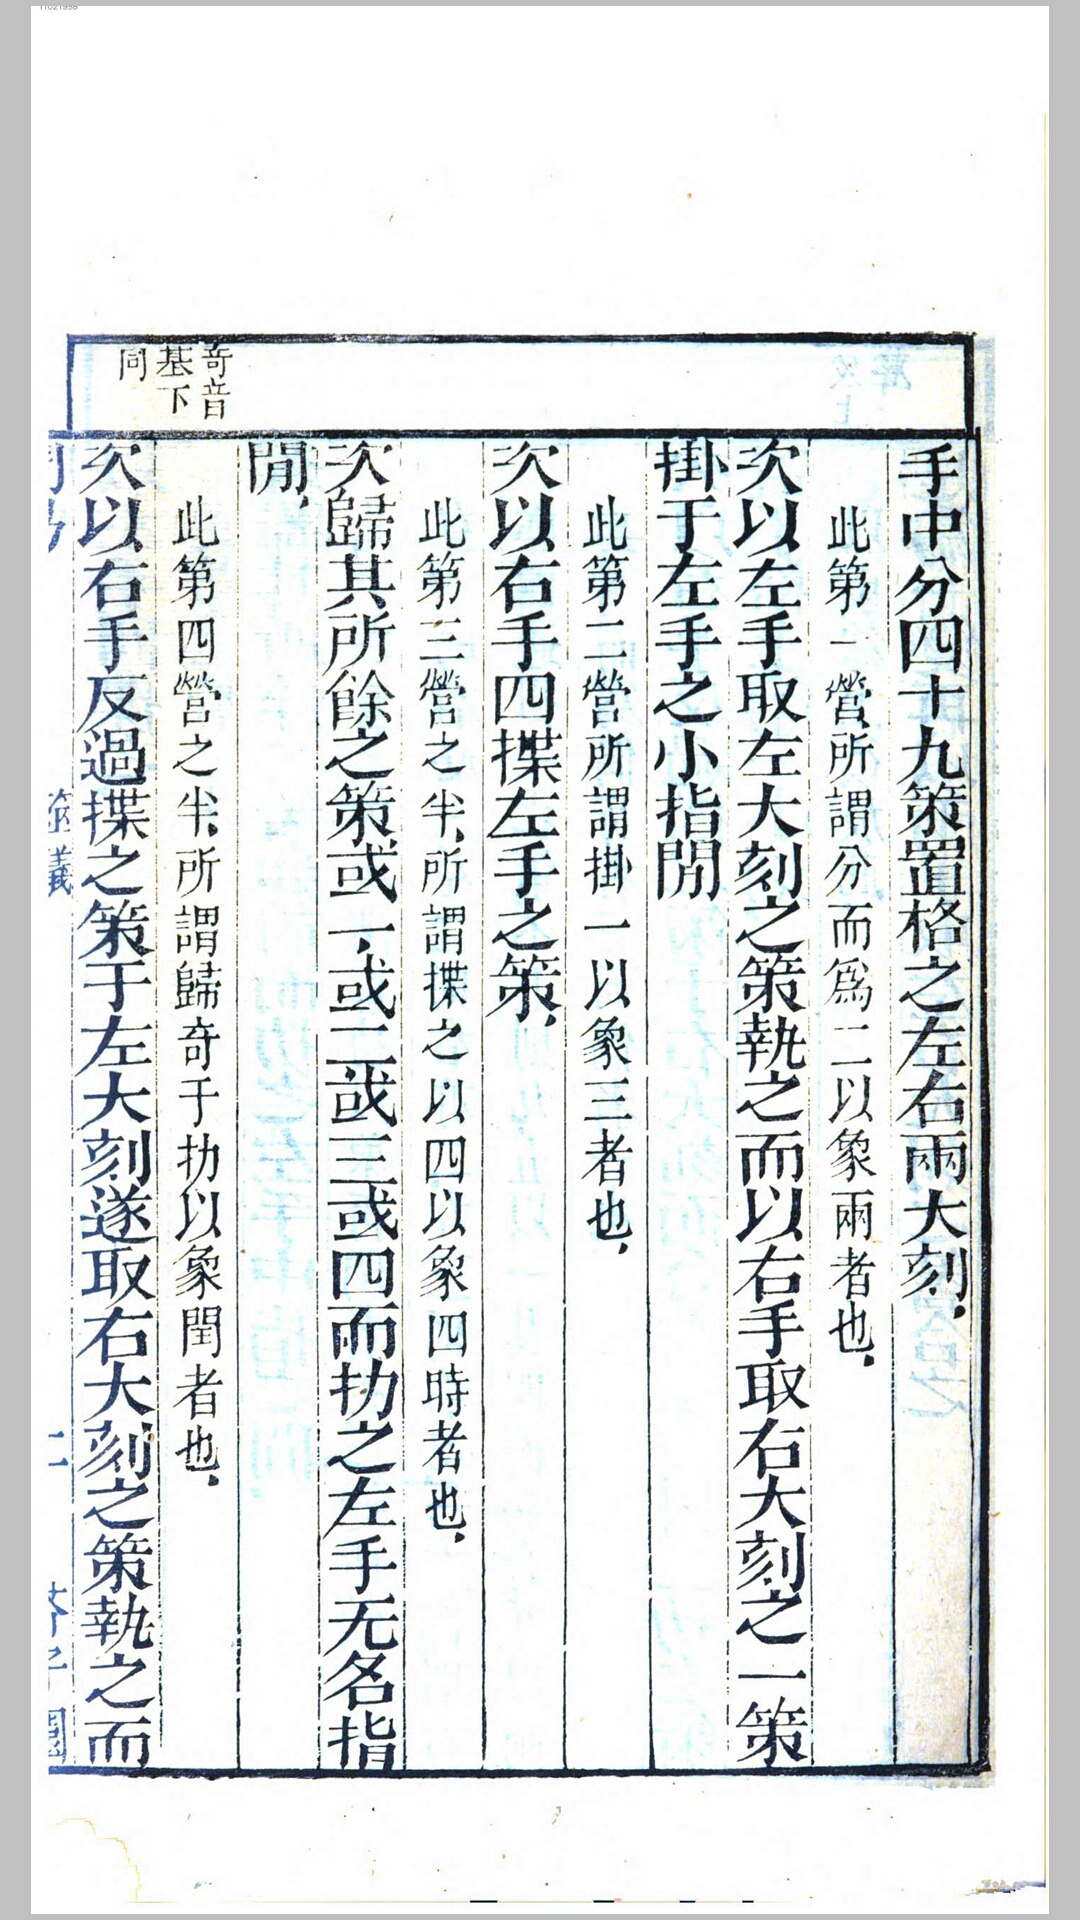 11021958
奇音
基下
同
手中分四十九策置格之左右兩大刻
此第一營所謂分而爲二以象兩者也
次以左手取左大刻之策執之而以右手取右大刻之一策
掛于左手之小指閒
此第二營所謂掛一以象三者也
次以右手四揲左手之策
此第三營之半所謂揲之以四以象四時者也
次歸其所餘之策或一或二或三或四而扐之左手无名指
閒
此第四營之半所謂歸奇于扐以象閏者也
次以右手反過揲之策于左大刻遂取右大刻之策執之而